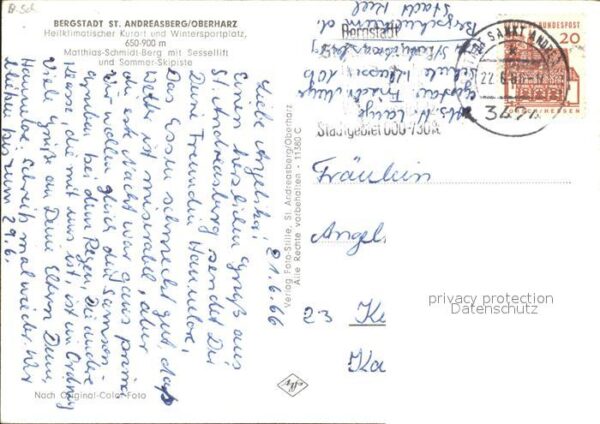 B. Sch
BERGSTADT ST. ANDREASBERG/OBERHARZ
Heilklimatischer Kurort und Wintersportplatz,
650-900 m
Matthias-Schmidt-Berg mit Sessellift
und Sommer-Skipiste
21.6.66
Liebe Angelika!
Einen herzlichen Gruß aus
St. Andreasberg sendet Dir
Deine Freundin Hannelore!
Das Essen schmeckt gut, das
Wetter ist miserabel, aber
die erste Nacht war ganz prima
Wir wollen gleich
bei dem Regen, die andere
Klasse, die mit uns ist, ist in Ordnung
Viele Grüße an Deine Eltern Deine
Hannelore. Schreib mal wieder. Wir
bleiben bis zum 29.6.
Nach Original-Color-Foto
Verlag Foto-Stille, St. Andreasberg/Oberharz
Alle Rechte vorbehalten - 11380 C
Abs. H. Lange
Schule Klasse 10b
St. Andreasberg
Stadt Kiel
Bergstadt
Stadtgebiet 600-730
SANKT ANDR
22.6.66
3424
BUNDESPOST
20
Fräulein
Angel
23 Ke
Ka
privacy protection
Datenschutz